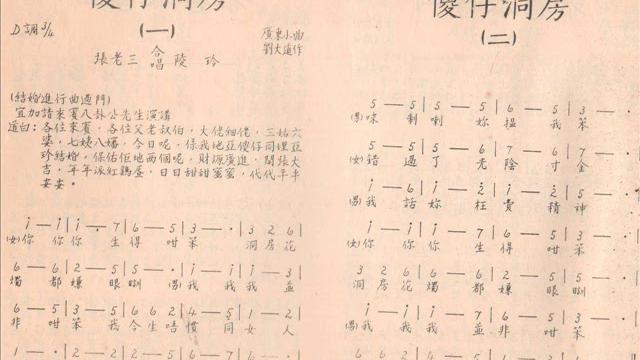 傻仔洞房
(一)
D調 3/4
廣東小曲
劉大道作
張老三 合唱 陵玲
(結婚進行曲過門)
宜加請來賓八卦公先生演講
道白:各位來賓,各位父老叔伯,大佬細佬,三姑六
婆,七姨八嬸,今日呢,保我地亞傻仔同埋亞
珍結婚,保佑佢地兩個呢,財源廣進,開張大
吉,年年派紅鷄蛋,日日甜甜蜜蜜,代代平平
安安。
i — i | i · 7 | 6 — 5 | 5 — · | 3 2 6
(女)你 你 你 生得 咁 笨 洞房花
6 — 6 | 2 — 5 | 5 — · | i — i | i — 3
燭 都 嫌 眼瞓 (男)我 我 我 並
非 咁 笨 我 今生唔 慣 同 女 人
傻仔洞房
(二)
5 — 5 | 5 — 5 | 6 — 5 | 3 —
(男)味 喇 喇 妳 搵 我 笨
5 — 6 | 7 — 7 | 6 — 7 | 6 —
(女)錯 過 了 光 陰 寸 金
i — 6 | i — 2 | i — 2 | 5 —
(男)我 話 妳 枉 費 精 神
i — i | i — 7 | 6 — 5 | 5 —
(女)你 你 你 生 得 咁 笨
3 2 6 | 6 — 6 | 2 — 5 | 5 —
洞 房 花 燭 都 嫌 眼瞓
i — i | i — 3 | 6 — 5 | 3 —
(男)我 我 我 並 非 咁 笨